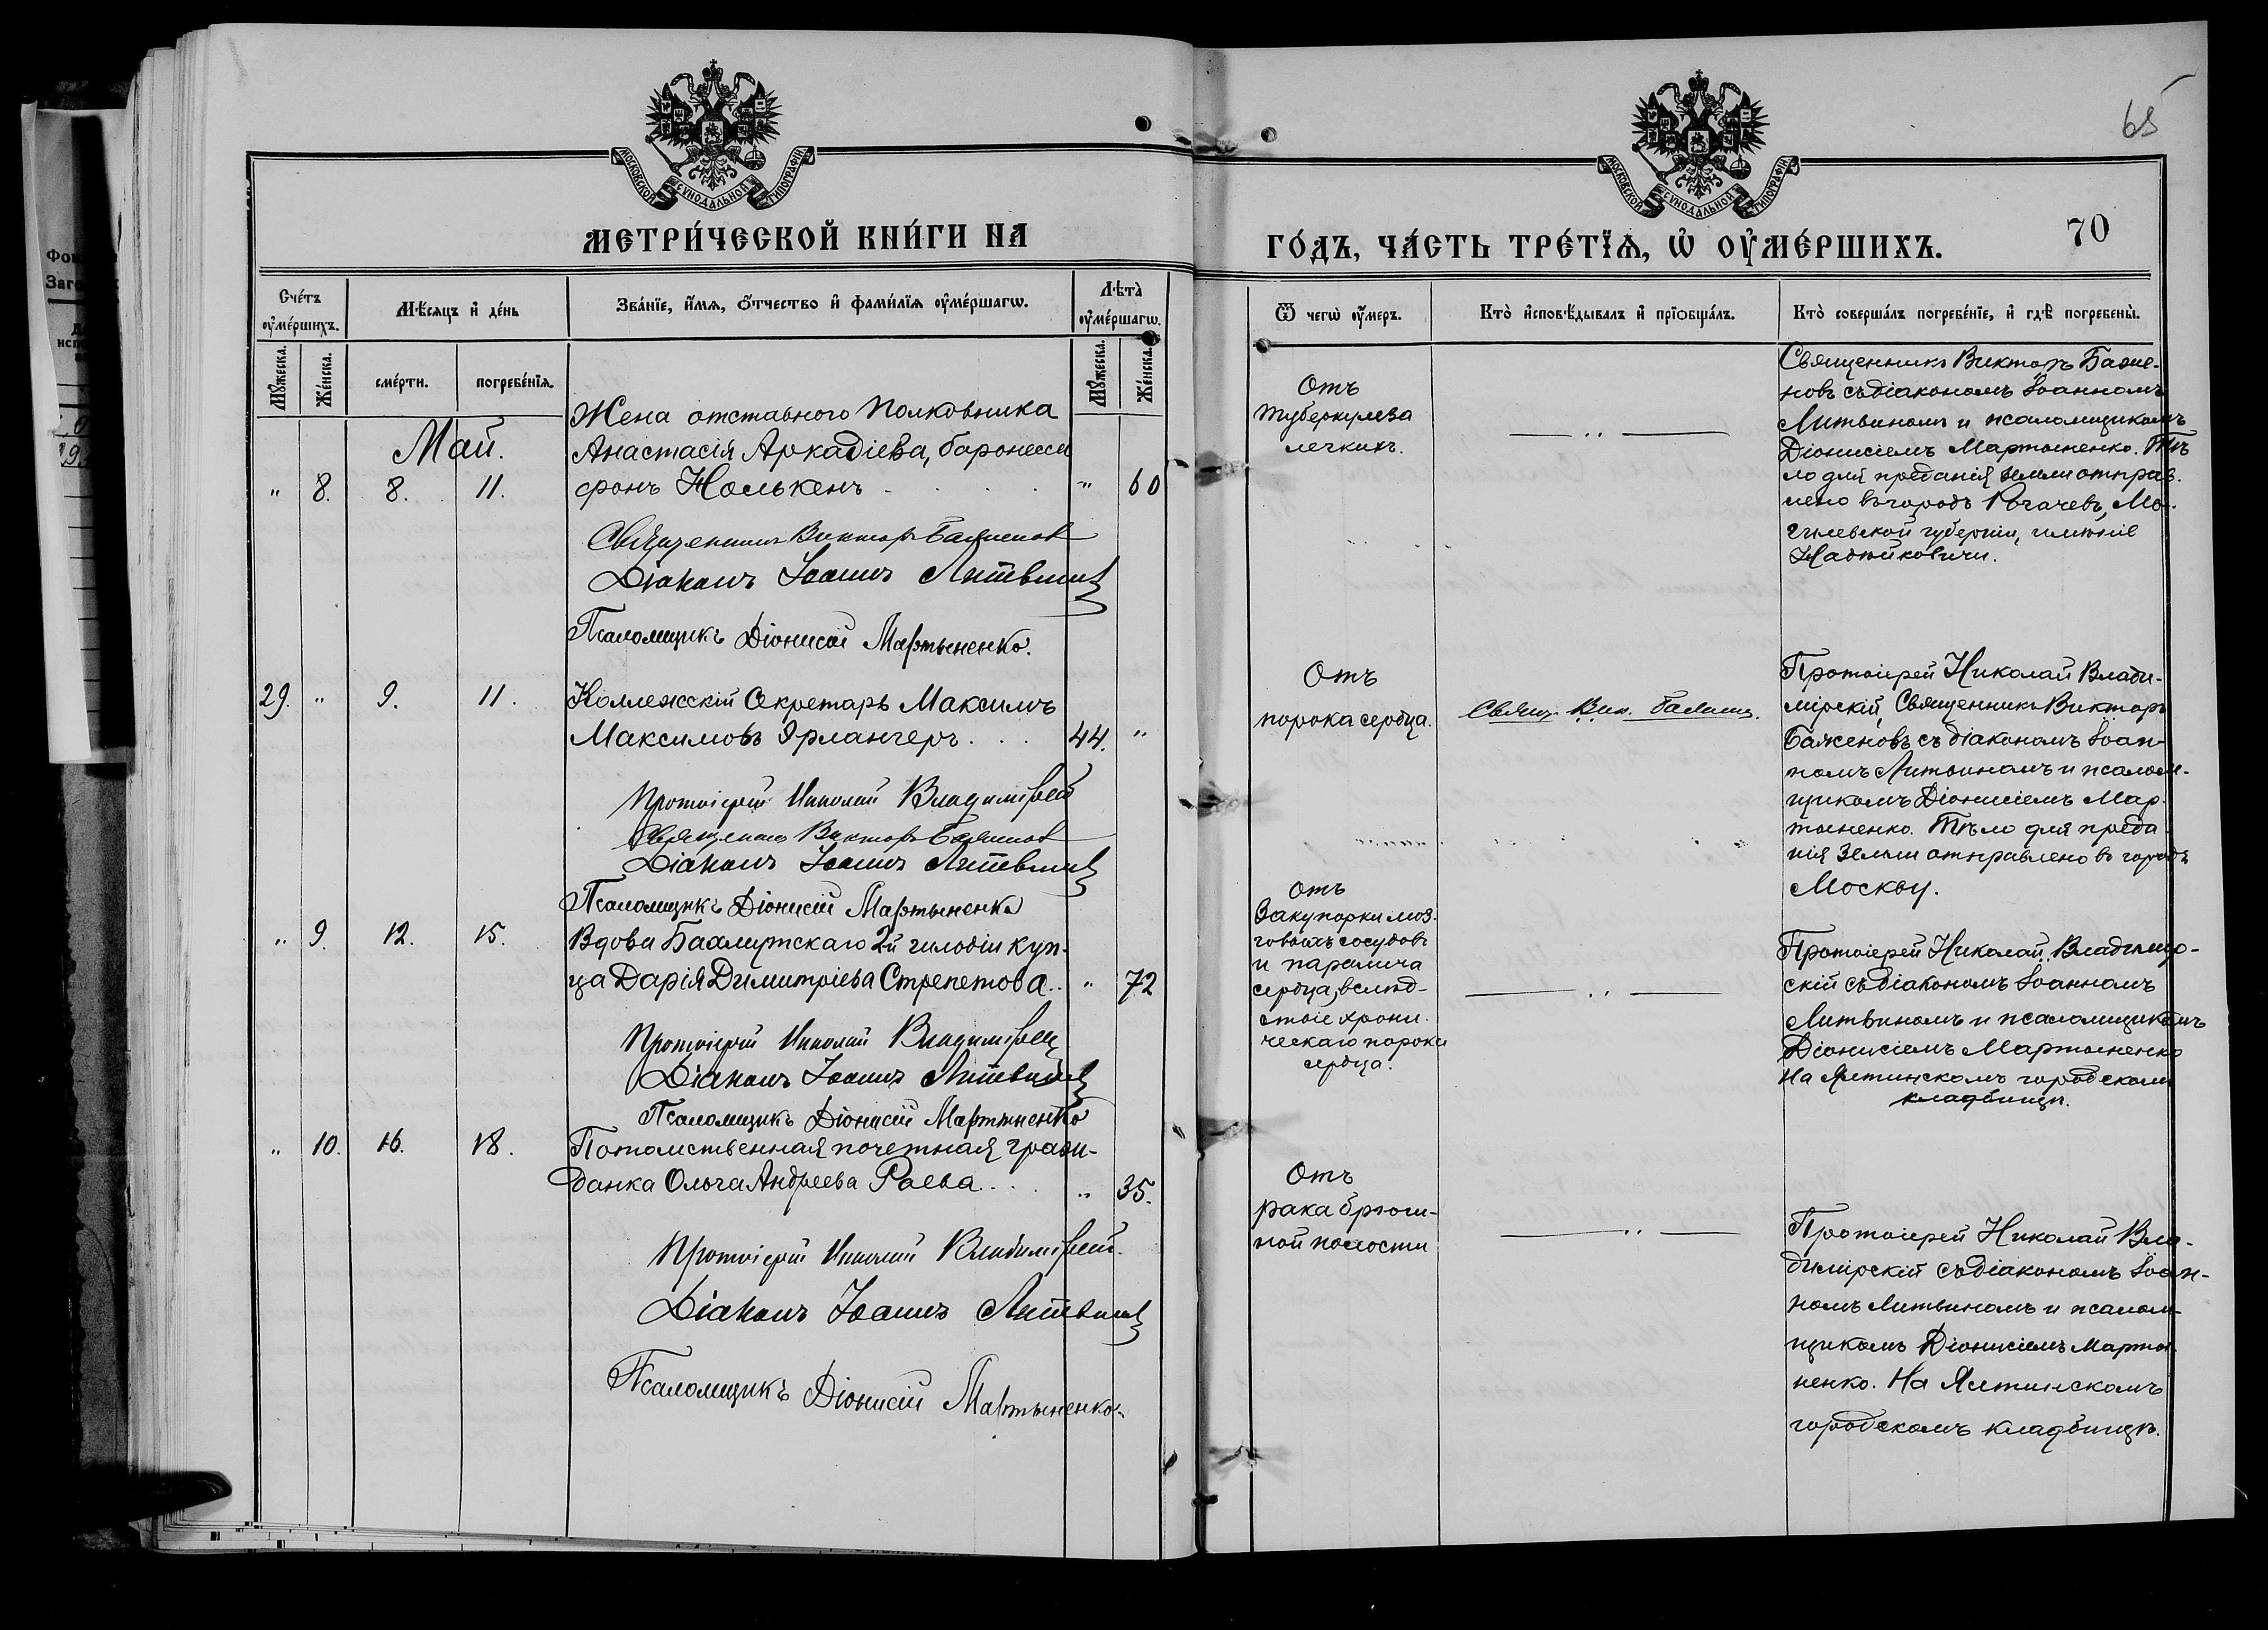 65
МОСКОВСКОЙ СУНОДАЛЬНОЙ ТИПОГРАФІИ
МОСКОВСКОЙ СУНОДАЛЬНОЙ ТИПОГРАФІИ
МЕТРИ́ЧЕСКОЙ КНИ́ГИ НА
ГО́ДЪ, ЧА́СТЬ ТРЕ́ТІѦ, Ѡ҆ ОУ҆МЕ́РШИХЪ.
70
Сче́тъ оу҆ме́ршихъ.
Мѣ́сяцъ и҆ де́нь
Зва́нїе, и҆́мѧ, ѻ҆́тчество и҆ фами́лїѧ оу҆ме́ршагѡ.
Лѣта̀ оу҆ме́ршагѡ.
Ѿ чегѡ̀ оу҆́меръ.
Кто̀ и҆сповѣ́дывалъ и҆ прїѻбща́лъ.
Кто̀ соверша́лъ погребе́нїе, и҆ гдѣ̀ погребены̀.
Мꙋ́жеска.
Же́нска.
сме́рти.
погребе́нїѧ.
Мꙋ́жеска.
Же́нска.
Май.
Жена отставного Полковника
Анастасія Аркадіева, баронесса
" 8. 8. 11. фонъ Нолькенъ . . . . " 60
Священникъ Викторъ Баженов
Діаконъ Іоаннъ Литвинъ
Псаломщикъ Діонисій Мартыненко.
Отъ
туберкулеза
легкихъ.
Священникъ Викторъ Баже-
новъ съ діакономъ Іоанномъ
Литвиномъ и псаломщикомъ
Діонисіемъ Мартыненко. Тѣ-
ло для преданія земли отправ-
лено въ городъ Рогачевъ, Мо-
гилевской губерніи, имѣніе
29. " 9. 11. Коллежскій Секретарь Максимъ
Максимовъ Эрлангеръ . . . 44. "
Протоіерей Николай Владимірскій
Священникъ Викторъ Баженов
Діаконъ Іоаннъ Литвинъ
Псаломщикъ Діонисій Мартыненко
Отъ
порока сердца.
Свящ. Вик. Баженов.
Протоіерей Николай Влади-
мірскій, Священникъ Викторъ
Баженовъ съ діакономъ Іоан-
номъ Литвиномъ и псалом-
щикомъ Діонисіемъ Мар-
тыненко. Тѣло для преда-
нія земли отправлено въ городъ
Москву.
" 9. 12. 15. Вдова Бахмутскаго 2й гильдіи куп-
ца Дарія Димитріева Стрепетова.. " 72
Протоіерей Николай Владимірскій
Діаконъ Іоаннъ Литвинъ
Псаломщикъ Діонисій Мартыненко
Отъ
закупорки моз-
говыхъ сосудовъ
и паралича
сердца, вслѣд-
ствіе хрони-
ческаго порока
сердца.
Протоіерей Николай Владимір-
скій съ діакономъ Іоанномъ
Литвиномъ и псаломщикомъ
Діонисіемъ Мартыненко
На Ялтинскомъ городскомъ
кладбищѣ.
" 10. 16. 18. Потомственная почетная граж-
данка Ольга Андреева Раева. . . " 35.
Протоіерей Николай Владимірскій.
Діаконъ Іоаннъ Литвинъ
Псаломщикъ Діонисій Мартыненко.
Отъ
рака брюш-
ной полости
Протоіерей Николай Вла-
димірскій съ діакономъ Іоан-
номъ Литвиномъ и псалом-
щикомъ Діонисіемъ Марты-
ненко. На Ялтинскомъ
городскомъ кладбищѣ.